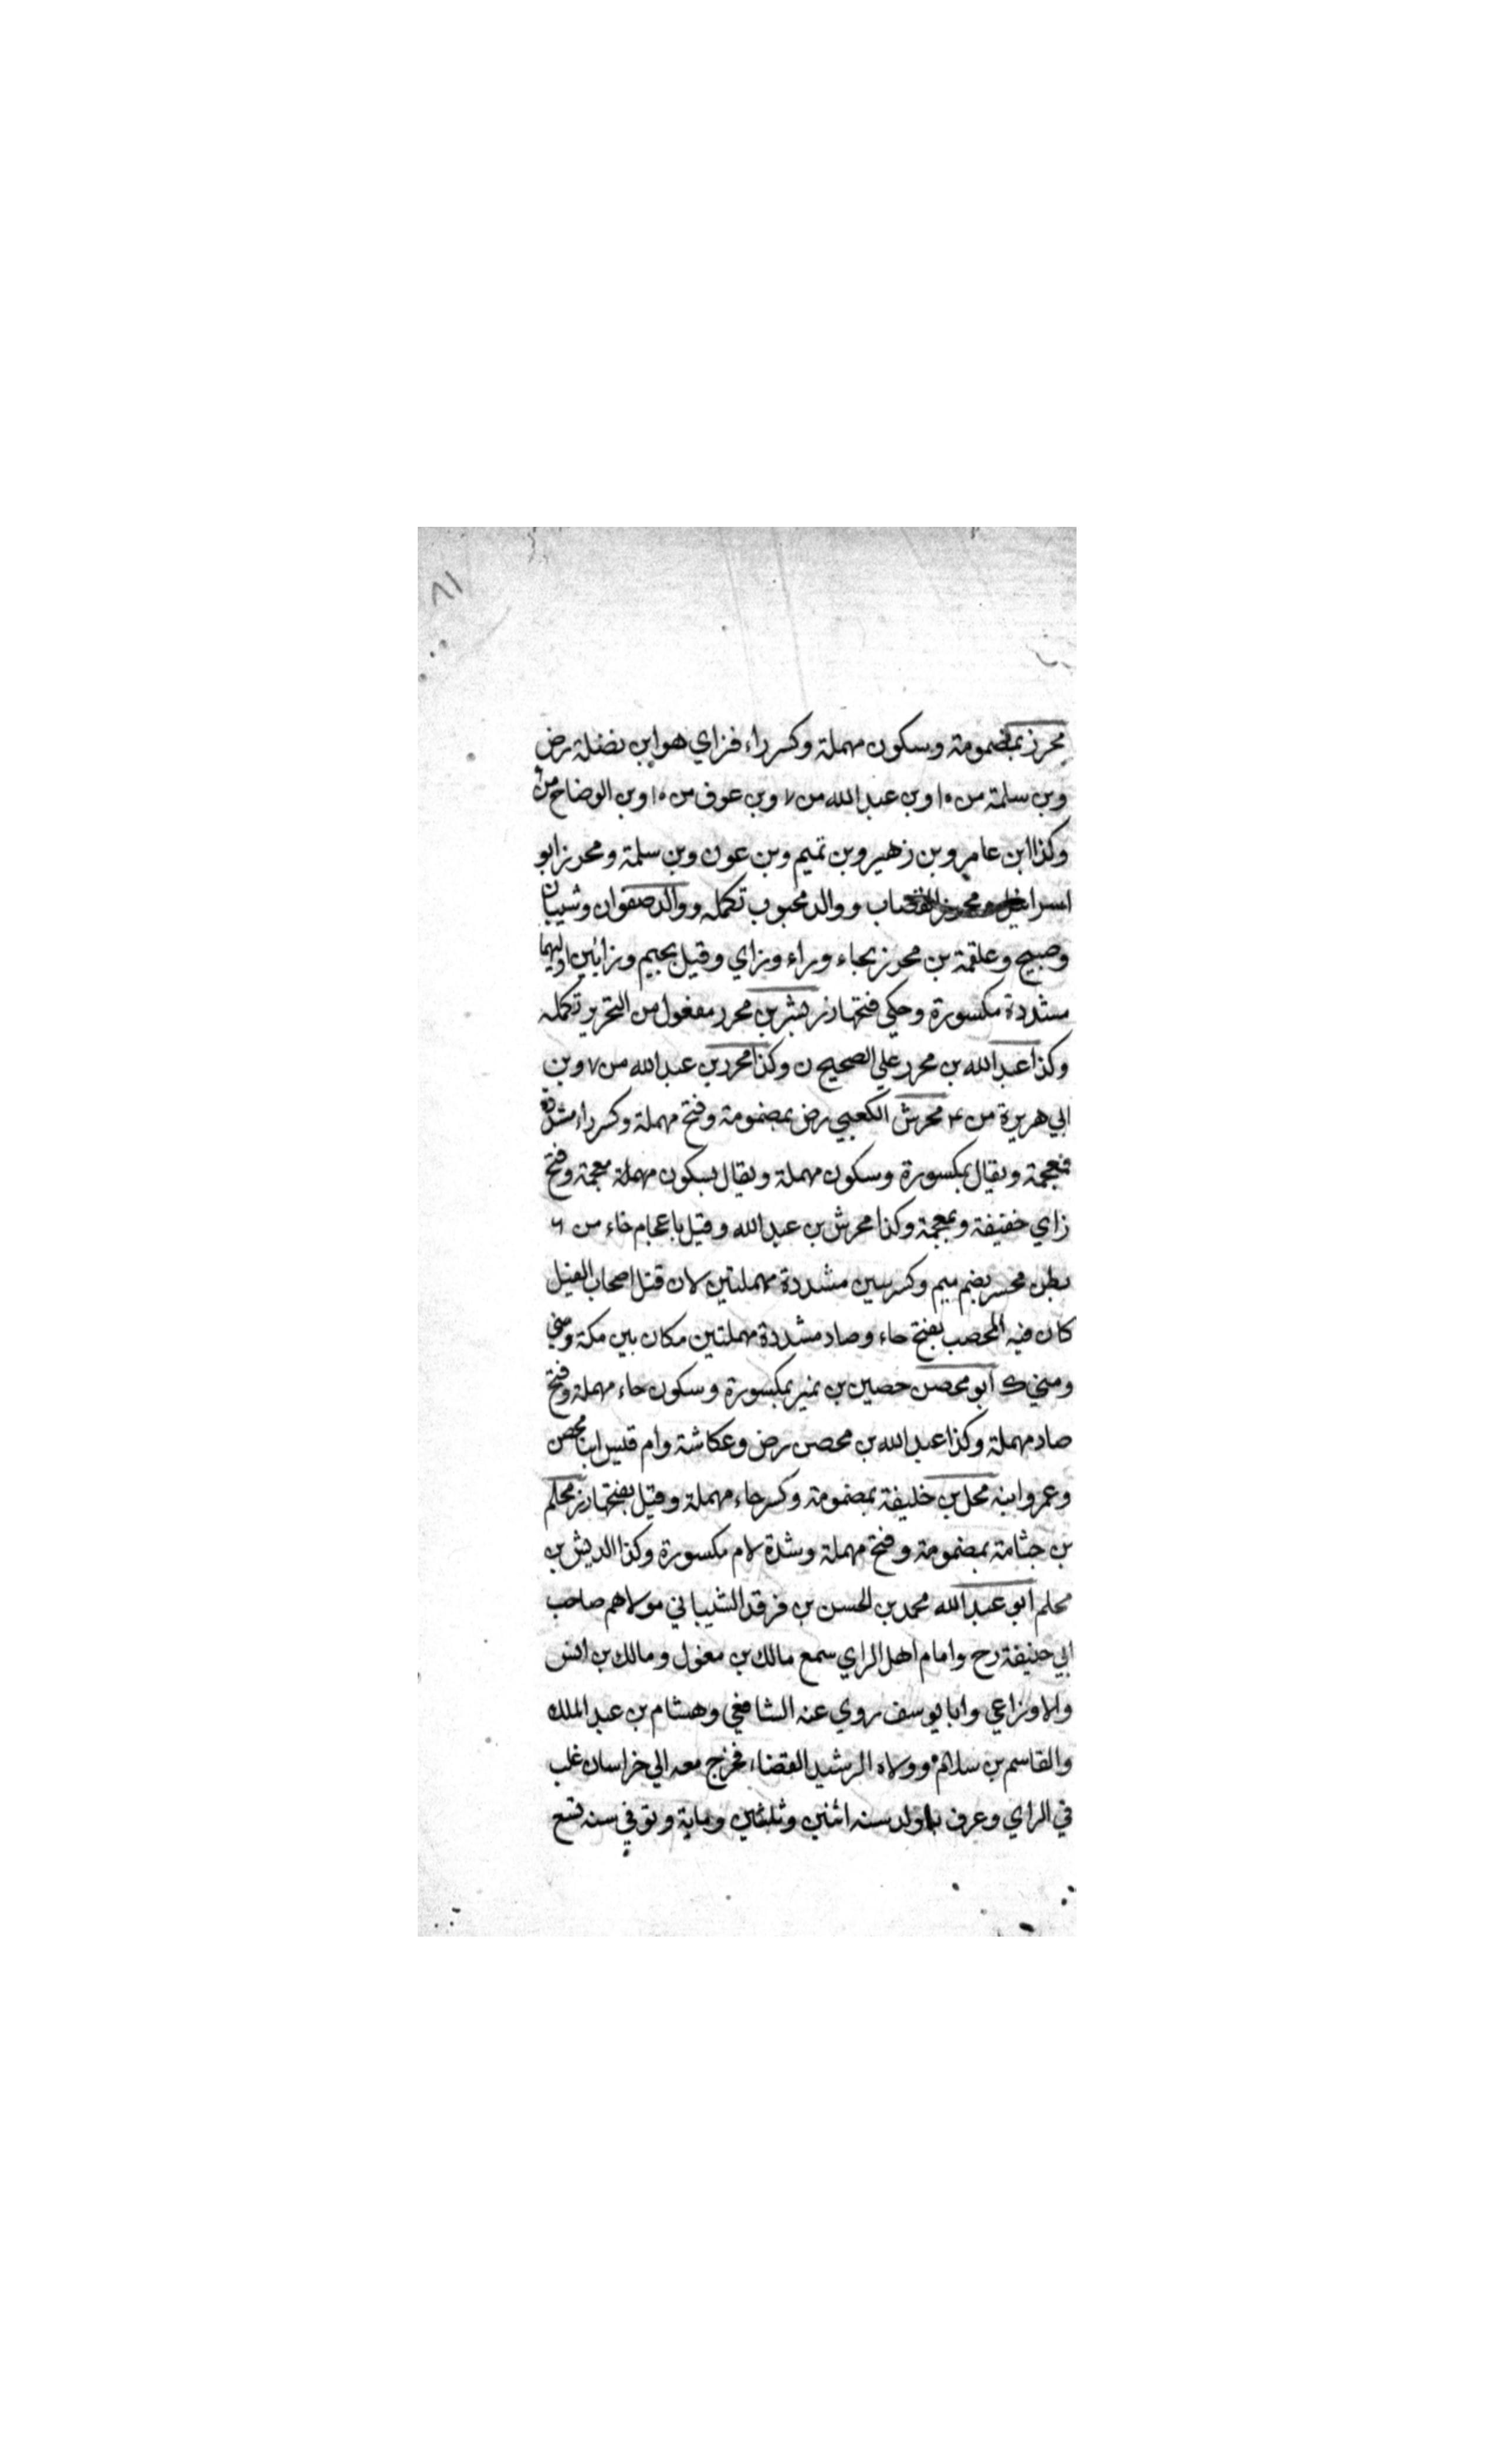 ٨١
محرز بمضمومة وسكون مهملة وكسر راء فزاي هو ابن نضلة رض
وبن سلمة من ١٠ وبن عبد الله من ٧ وبن عوف من ١٠ وبن الوضاح من
وكذا ابن عامر وبن زهير وبن تميم وبن عون وبن سلمة ومحرز ابو
اسرائيل ومحرز القصاب ووالد محبوب تكمله ووالد صفوان وشيبان
وصبيح وعلقمة بن محرز بحاء وراء وزاي وقيل بجيم وزائين اوليهما
مشددة مكسورة وحكي فتحها ز بشر بن محرر مفعول من التحرير تكمله
وكذا عبد الله بن محرر علي الصحيح ن وكذا محرر بن عبد الله من ٧ وبن
ابي هريرة من ٤ محرش الكعبي رض بمضمومة وفتح مهملة وكسر راء مشددة
فمعجمة ويقال بمكسورة وسكون مهملة ويقال بسكون مهملة معجمة وفتح
زاي خفيفة وبمعجمة وكذا محرش بن عبد الله وقيل باعجام خاء من ٦
بطن محسر بضم ميم وكسر سين مشددة مهملتين لان قتل اصحاب الفيل
كان فيه المحصب بفتح حاء وصاد مشددة مهملتين مكان بين مكة ومني
ومني ك ابو محصن حصين بن نمير بمكسورة وسكون حاء مهملة وفتح
صاد مهملة وكذا عبد الله بن محصن رض وعكاشة وام قيس ابنا محصن
وعمرو ابنه محل بن خليفة بمضمومة وكسر حاء مهملة وقيل بفتحها ز محلم
بن جثامة بمضمومة وفتح مهملة وشدة لام مكسورة وكذا الديش بن
محلم ابو عبد الله محمد بن الحسن بن فرقد الشيباني مولاهم صاحب
ابي حنيفة رح وامام اهل الراي سمع مالك بن مغول ومالك بن انس
والاوزاعي وابا يوسف روي عنه الشافعي وهشام بن عبد الملك
والقاسم بن سلام وولاه الرشيد القضاء فخرج معه الي خراسان غلب
في الراي وعرف به ولد سنه اثنين وثلثين وماية وتوفي سنه تسع